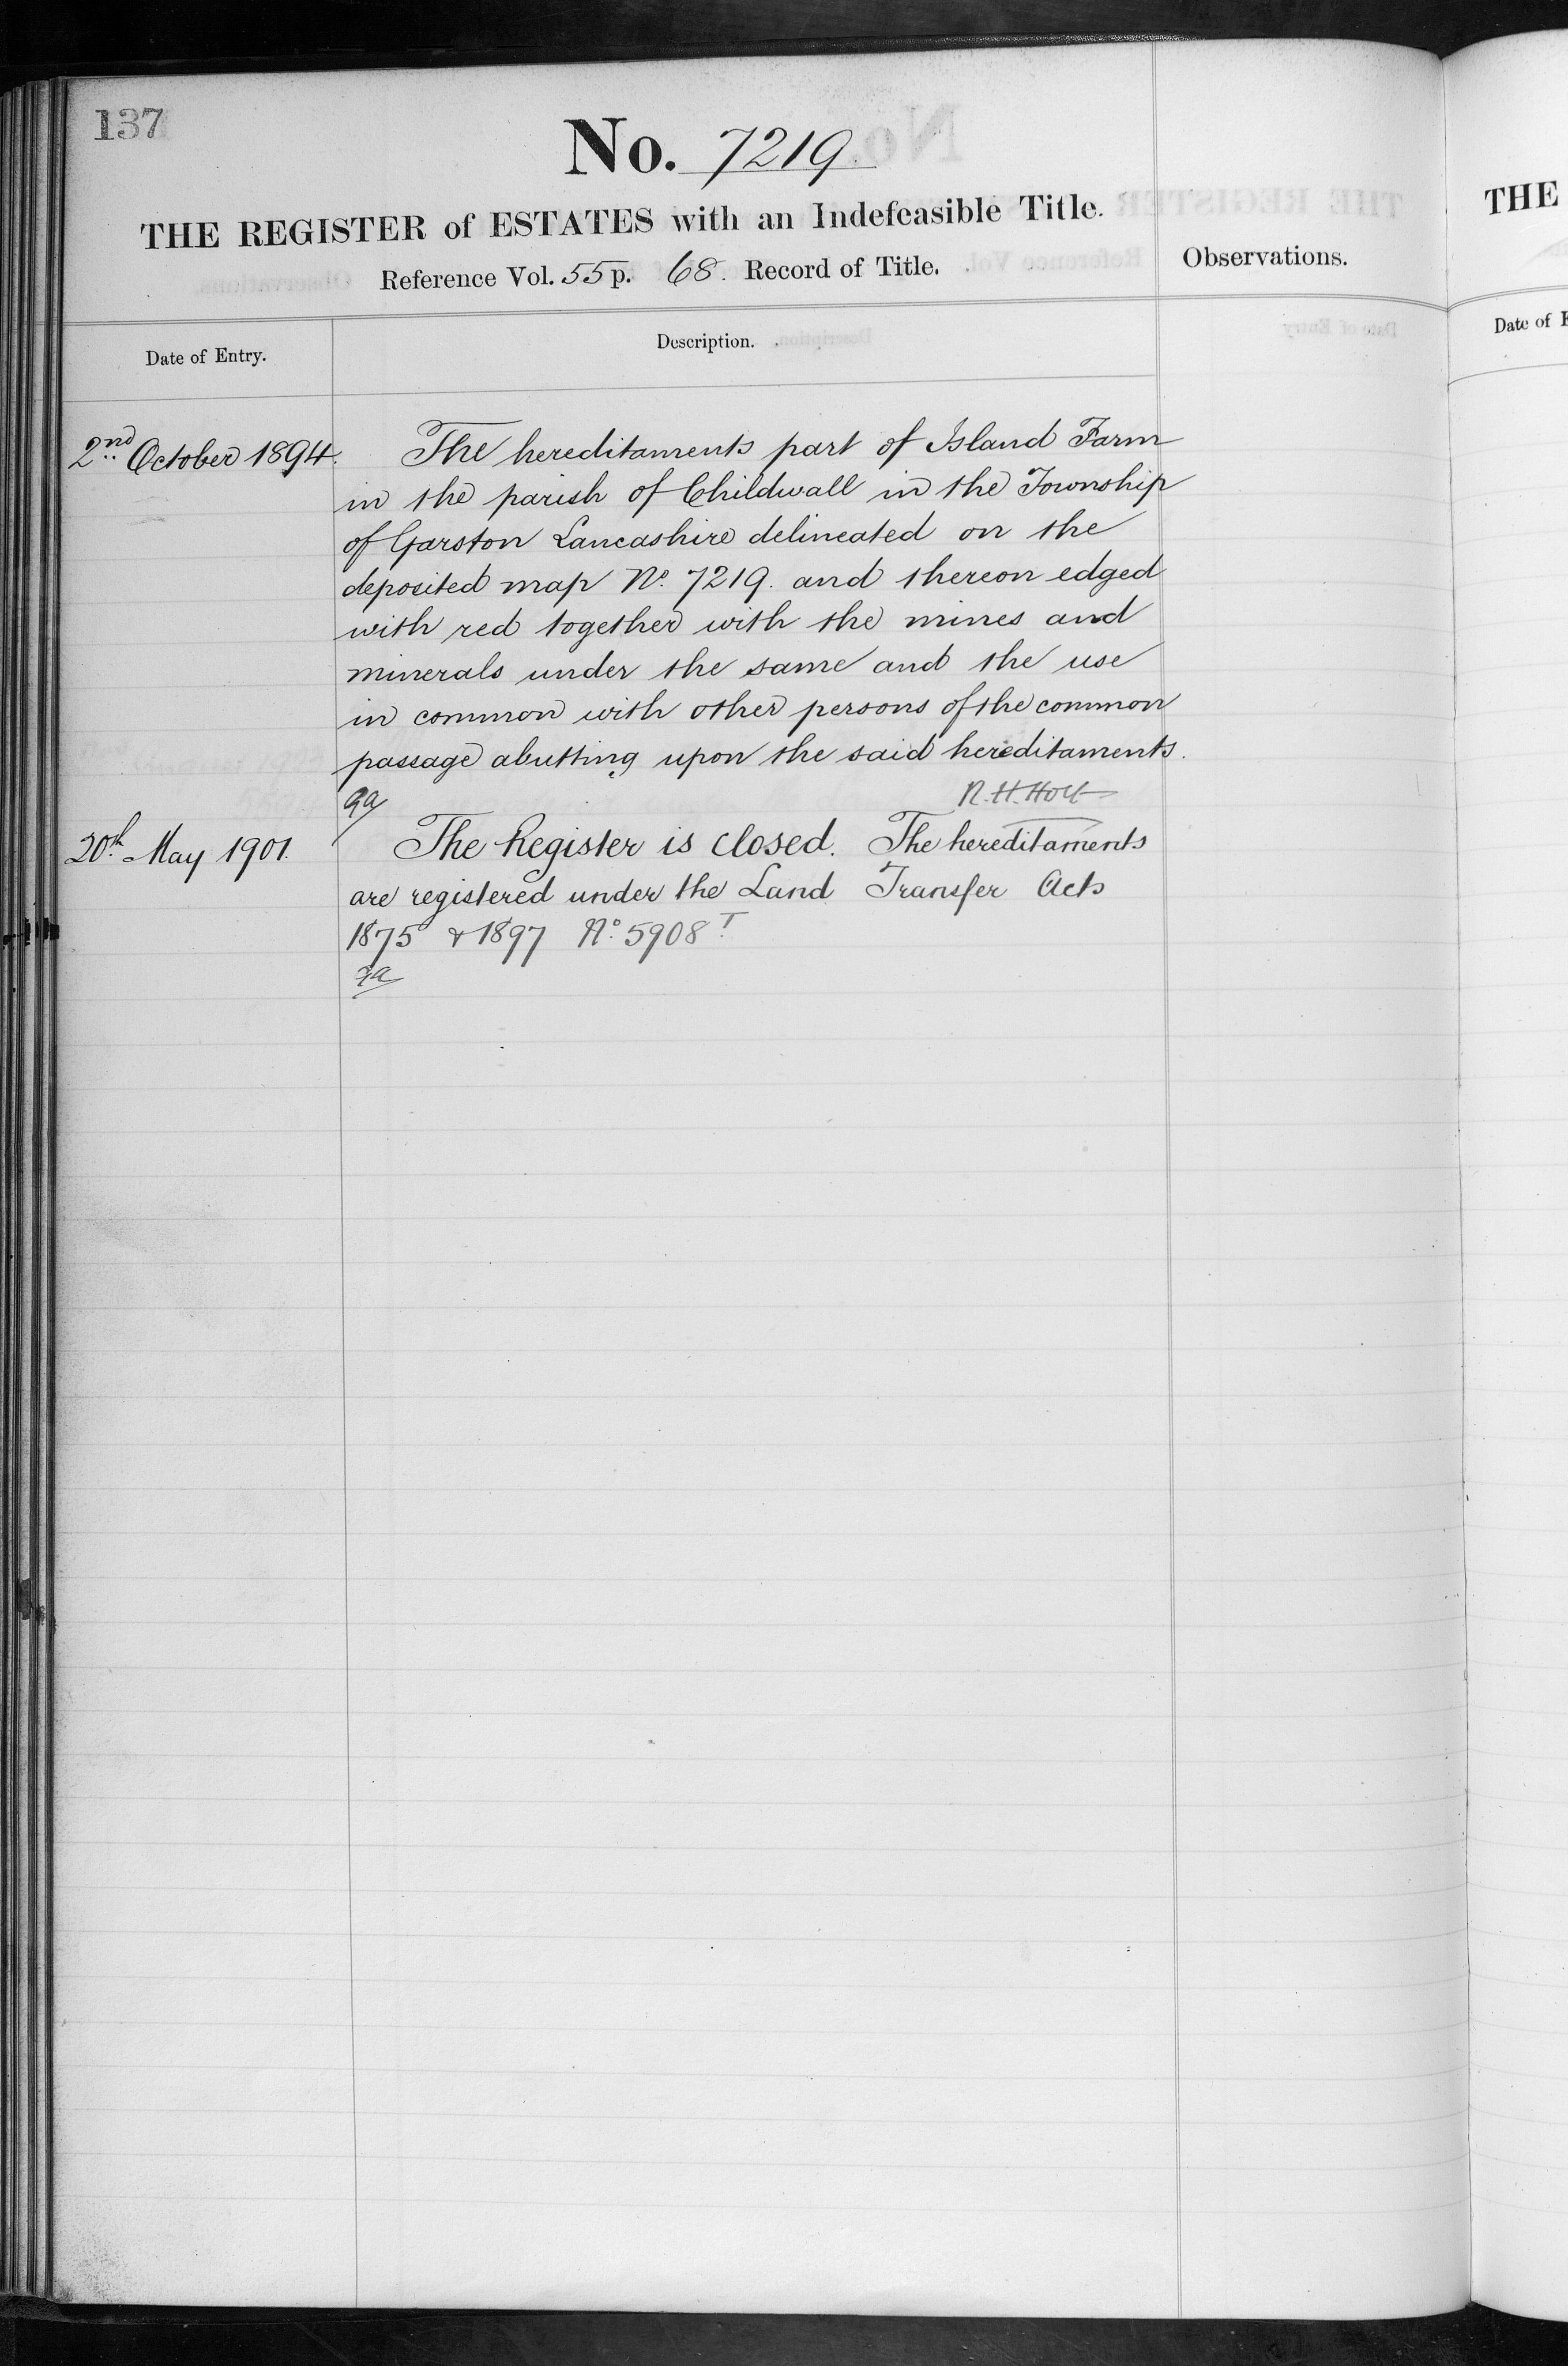 137
No. 7219
THE REGISTER of ESTATES with an Indefeasible Title.
Reference Vol. 55 p. 68. Record of Title.
Observations.
Date of Entry.
Description.
2nd October 1894.
The hereditaments part of Island Farm
in the parish of Childwall in the Township
of Garston Lancashire delineated on the
deposited map No. 7219. and thereon edged
with red together with the mines and
minerals under the same and the use
in common with other persons of the common
passage abutting upon the said hereditaments.
R.H. Holt
20th May 1901.
The Register is closed. The hereditaments
are registered under the Land Transfer Acts
1875 & 1897 No. 5908 T
THE
Date of